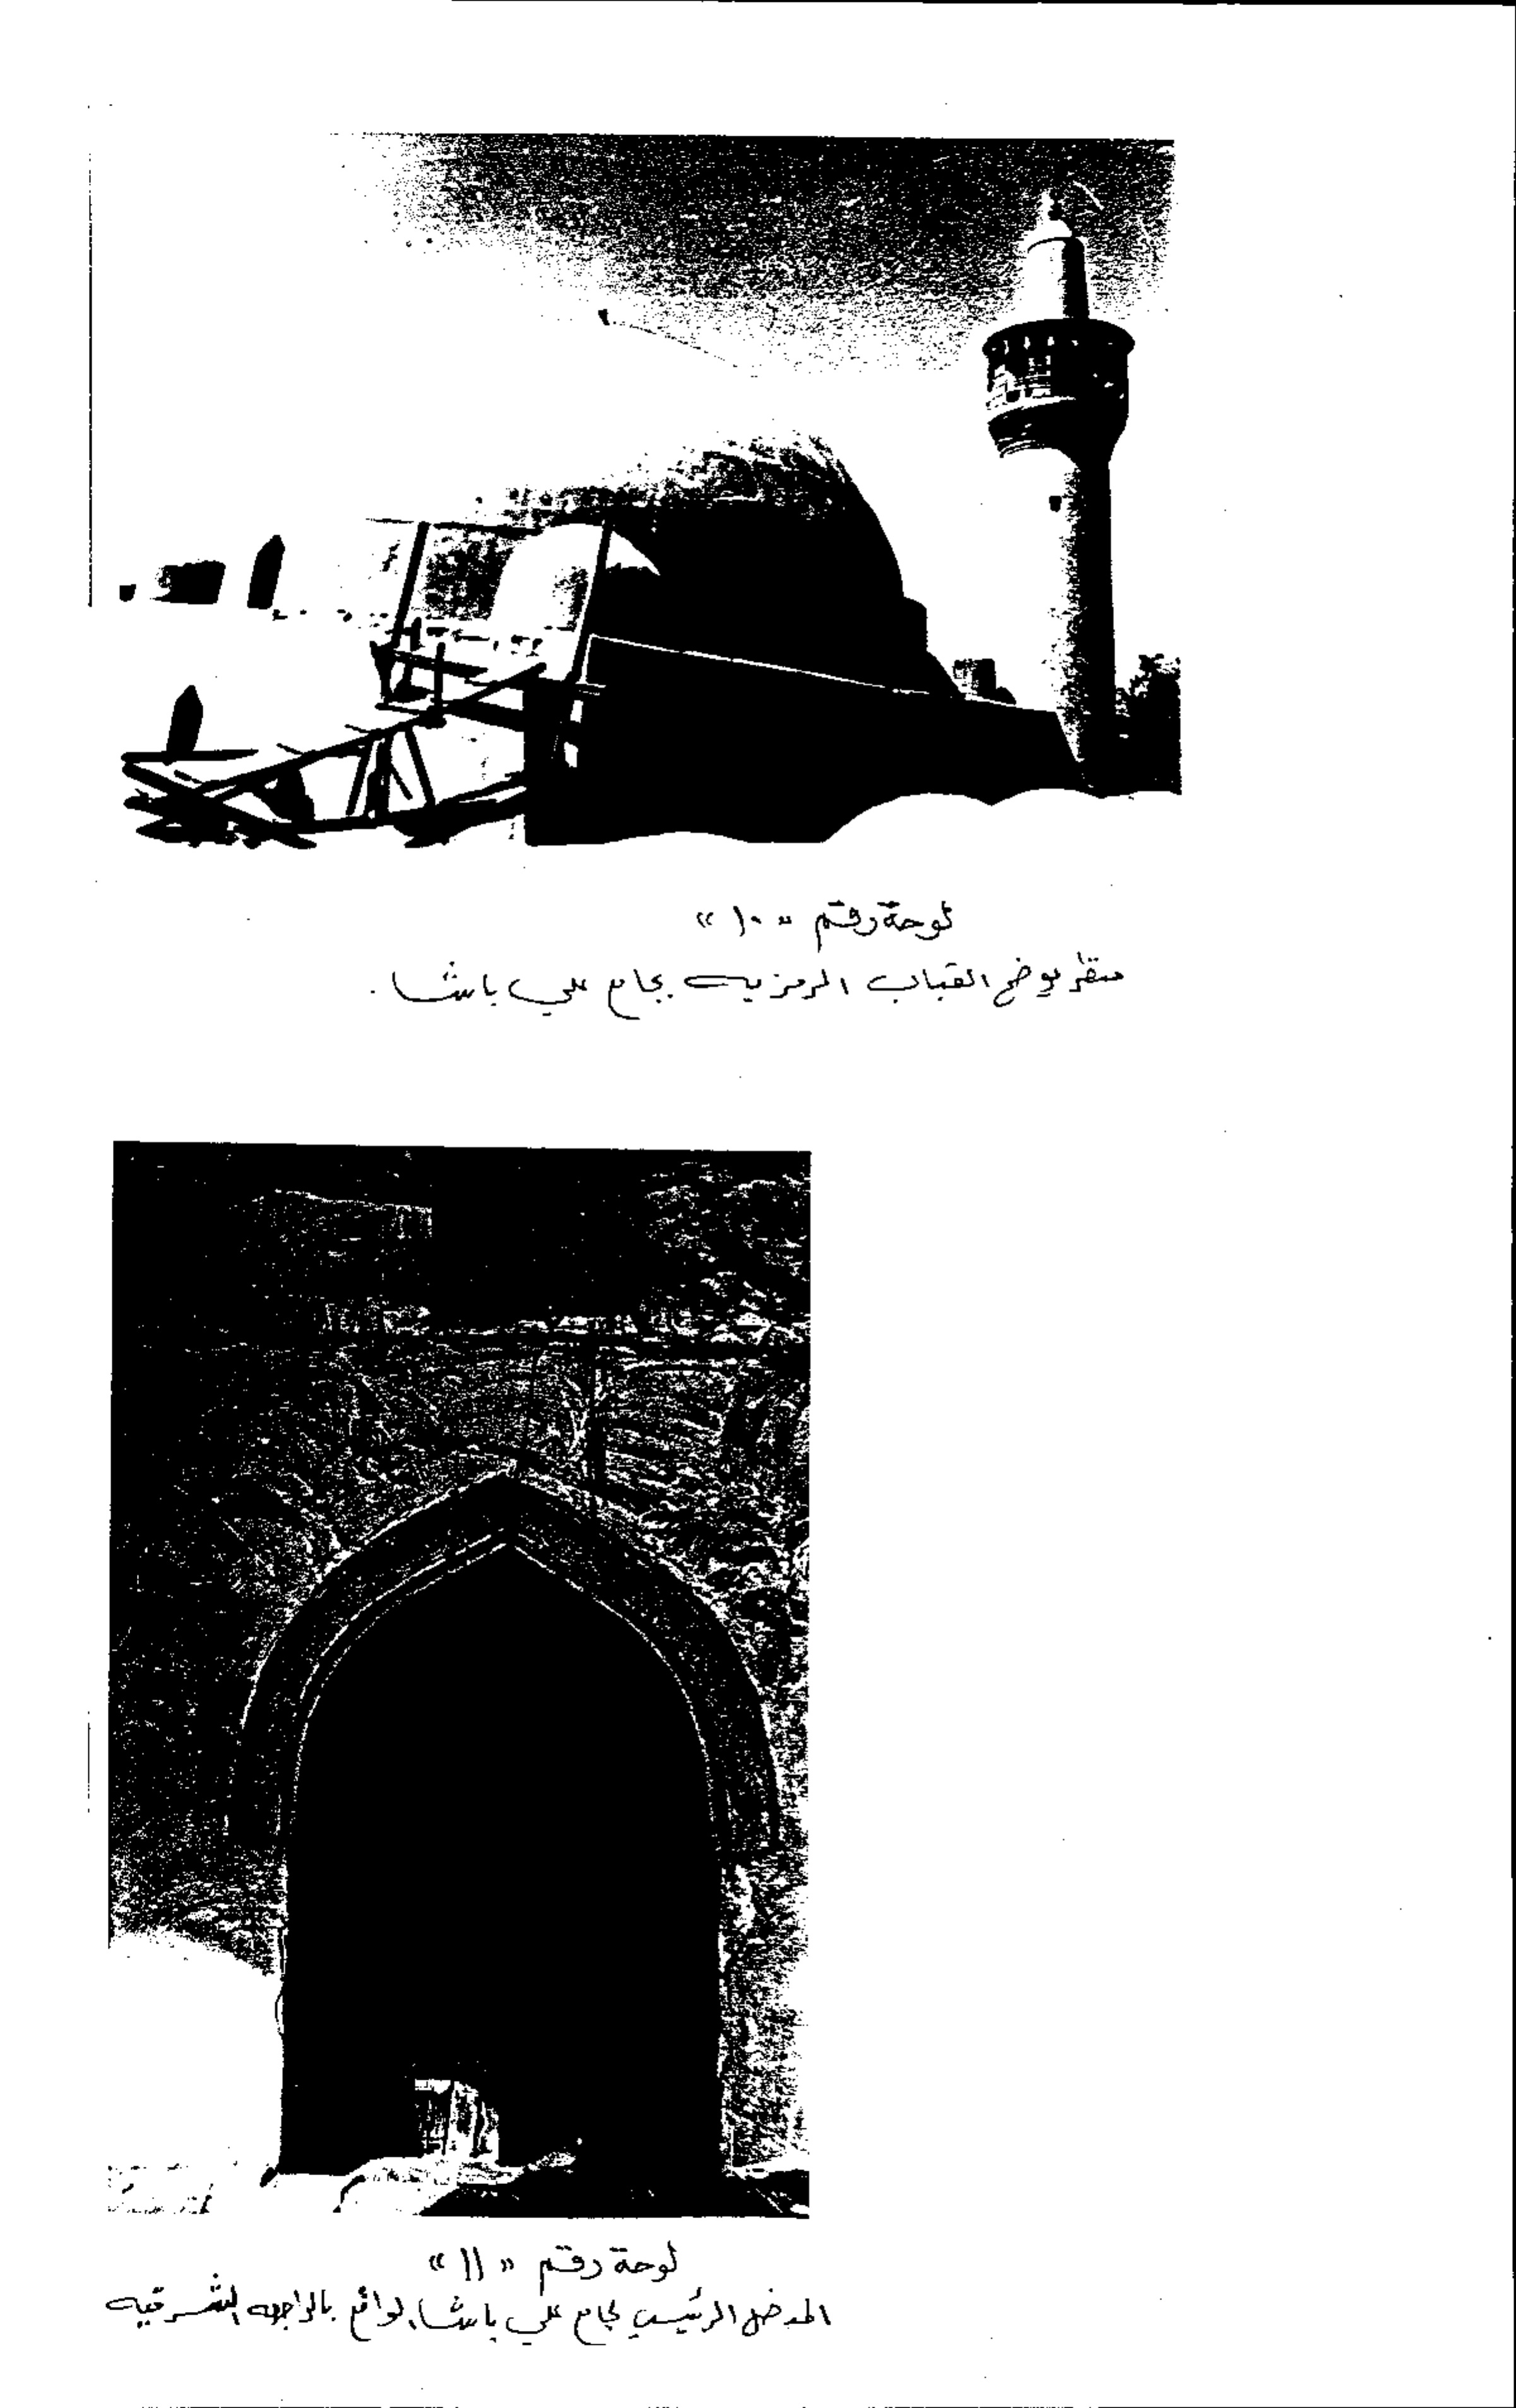 لوحة رقم « ١٠ »
منظر يوضح القباب الرمزيه بجامع علي باشا .
لوحة رقم « ١١ »
المدخل الرئيسي لجامع علي باشا الواقع بالواجهه الشرقيه